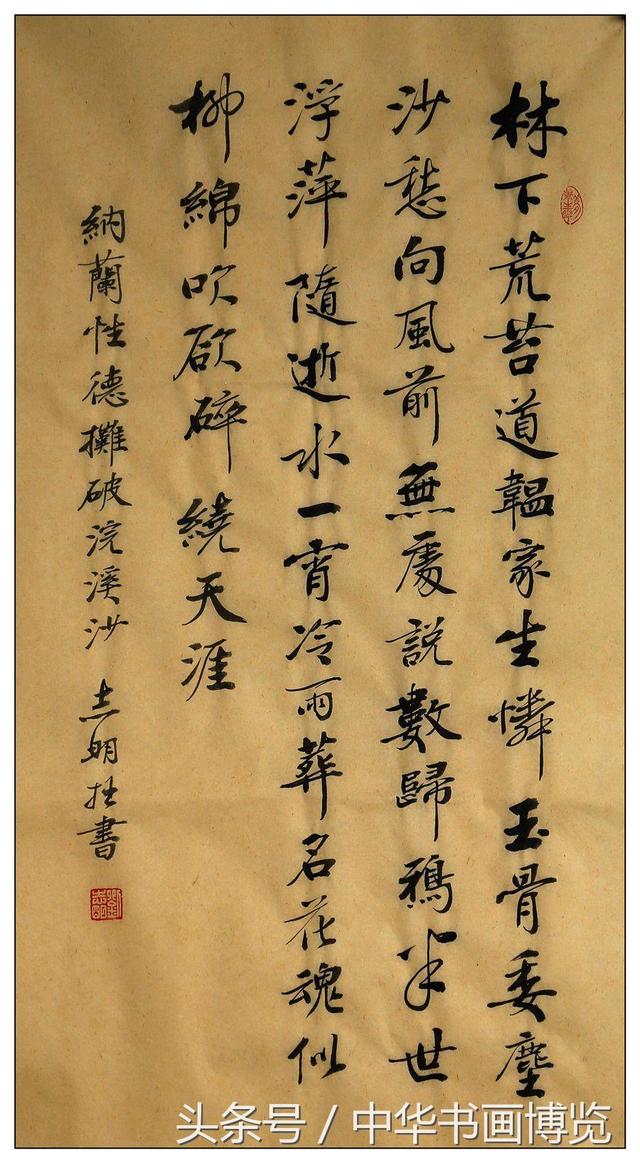 林下荒苔道韞家生憐玉骨委塵
沙愁向風前無處說數歸鴉半世
浮萍隨逝水一宵冷雨葬名花魂似
柳綿吹欲碎繞天涯
納蘭性德攤破浣溪沙 志明拙書
头条号 / 中华书画博览